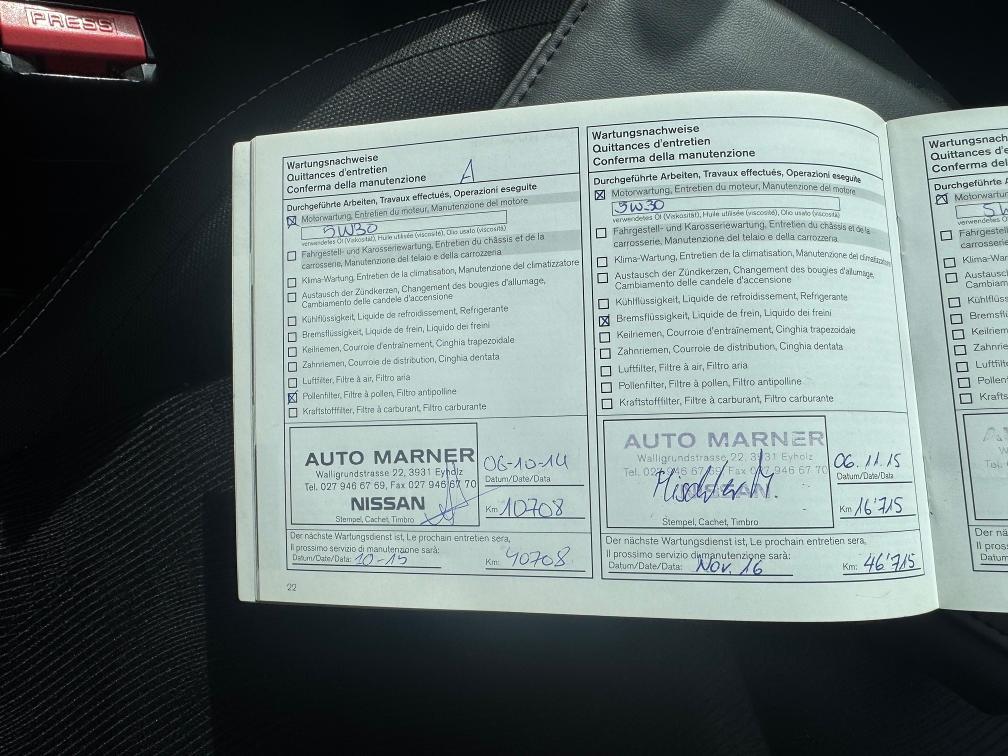 PRESS
Wartungsnachweise
Quittances d'entretien
Conferma della manutenzione A
Durchgeführte Arbeiten, Travaux effectués, Operazioni eseguite
Motorwartung, Entretien du moteur, Manutenzione del motore
5W30
verwendetes Öl (Viskosität), Huile utilisée (viscosité), Olio usato (viscosità)
Fahrgestell- und Karosseriewartung, Entretien du châssis et de la
carrosserie, Manutenzione del telaio e della carrozzeria
Klima-Wartung, Entretien de la climatisation, Manutenzione del climatizzatore
Austausch der Zündkerzen, Changement des bougies d'allumage,
Cambiamento delle candele d'accensione
Kühlflüssigkeit, Liquide de refroidissement, Refrigerante
Bremsflüssigkeit, Liquide de frein, Liquido dei freini
Keilriemen, Courroie d'entraînement, Cinghia trapezoidale
Zahnriemen, Courroie de distribution, Cinghia dentata
Luftfilter, Filtre à air, Filtro aria
Pollenfilter, Filtre à pollen, Filtro antipolline
Kraftstofffilter, Filtre à carburant, Filtro carburante
AUTO MARNER
Walligrundstrasse 22, 3931 Eyholz
Tel. 027 946 67 69, Fax 027 946 67 70
NISSAN
Stempel, Cachet, Timbro
06-10-14
Datum/Date/Data
Km 10708
Der nächste Wartungsdienst ist, Le prochain entretien sera,
Il prossimo servizio di manutenzione sarà:
Datum/Date/Data: 10-15 Km: 40708
22
Wartungsnachweise
Quittances d'entretien
Conferma della manutenzione
Durchgeführte Arbeiten, Travaux effectués, Operazioni eseguite
Motorwartung, Entretien du moteur, Manutenzione del motore
5W30
verwendetes Öl (Viskosität), Huile utilisée (viscosité), Olio usato (viscosità)
Fahrgestell- und Karosseriewartung, Entretien du châssis et de la
carrosserie, Manutenzione del telaio e della carrozzeria
Klima-Wartung, Entretien de la climatisation, Manutenzione del climatizzatore
Austausch der Zündkerzen, Changement des bougies d'allumage,
Cambiamento delle candele d'accensione
Kühlflüssigkeit, Liquide de refroidissement, Refrigerante
Bremsflüssigkeit, Liquide de frein, Liquido dei freini
Keilriemen, Courroie d'entraînement, Cinghia trapezoidale
Zahnriemen, Courroie de distribution, Cinghia dentata
Luftfilter, Filtre à air, Filtro aria
Pollenfilter, Filtre à pollen, Filtro antipolline
Kraftstofffilter, Filtre à carburant, Filtro carburante
AUTO MARNER
Walligrundstrasse 22, 3931 Eyholz
Tel. 027 946 67 69, Fax 027 946 67 70
NISSAN
Stempel, Cachet, Timbro
06.11.15
Datum/Date/Data
Km 16'715
Der nächste Wartungsdienst ist, Le prochain entretien sera,
Il prossimo servizio di manutenzione sarà:
Datum/Date/Data: Nov. 16 Km: 46'715